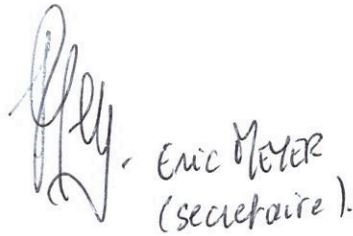 Eric MEYER
(secretaire).